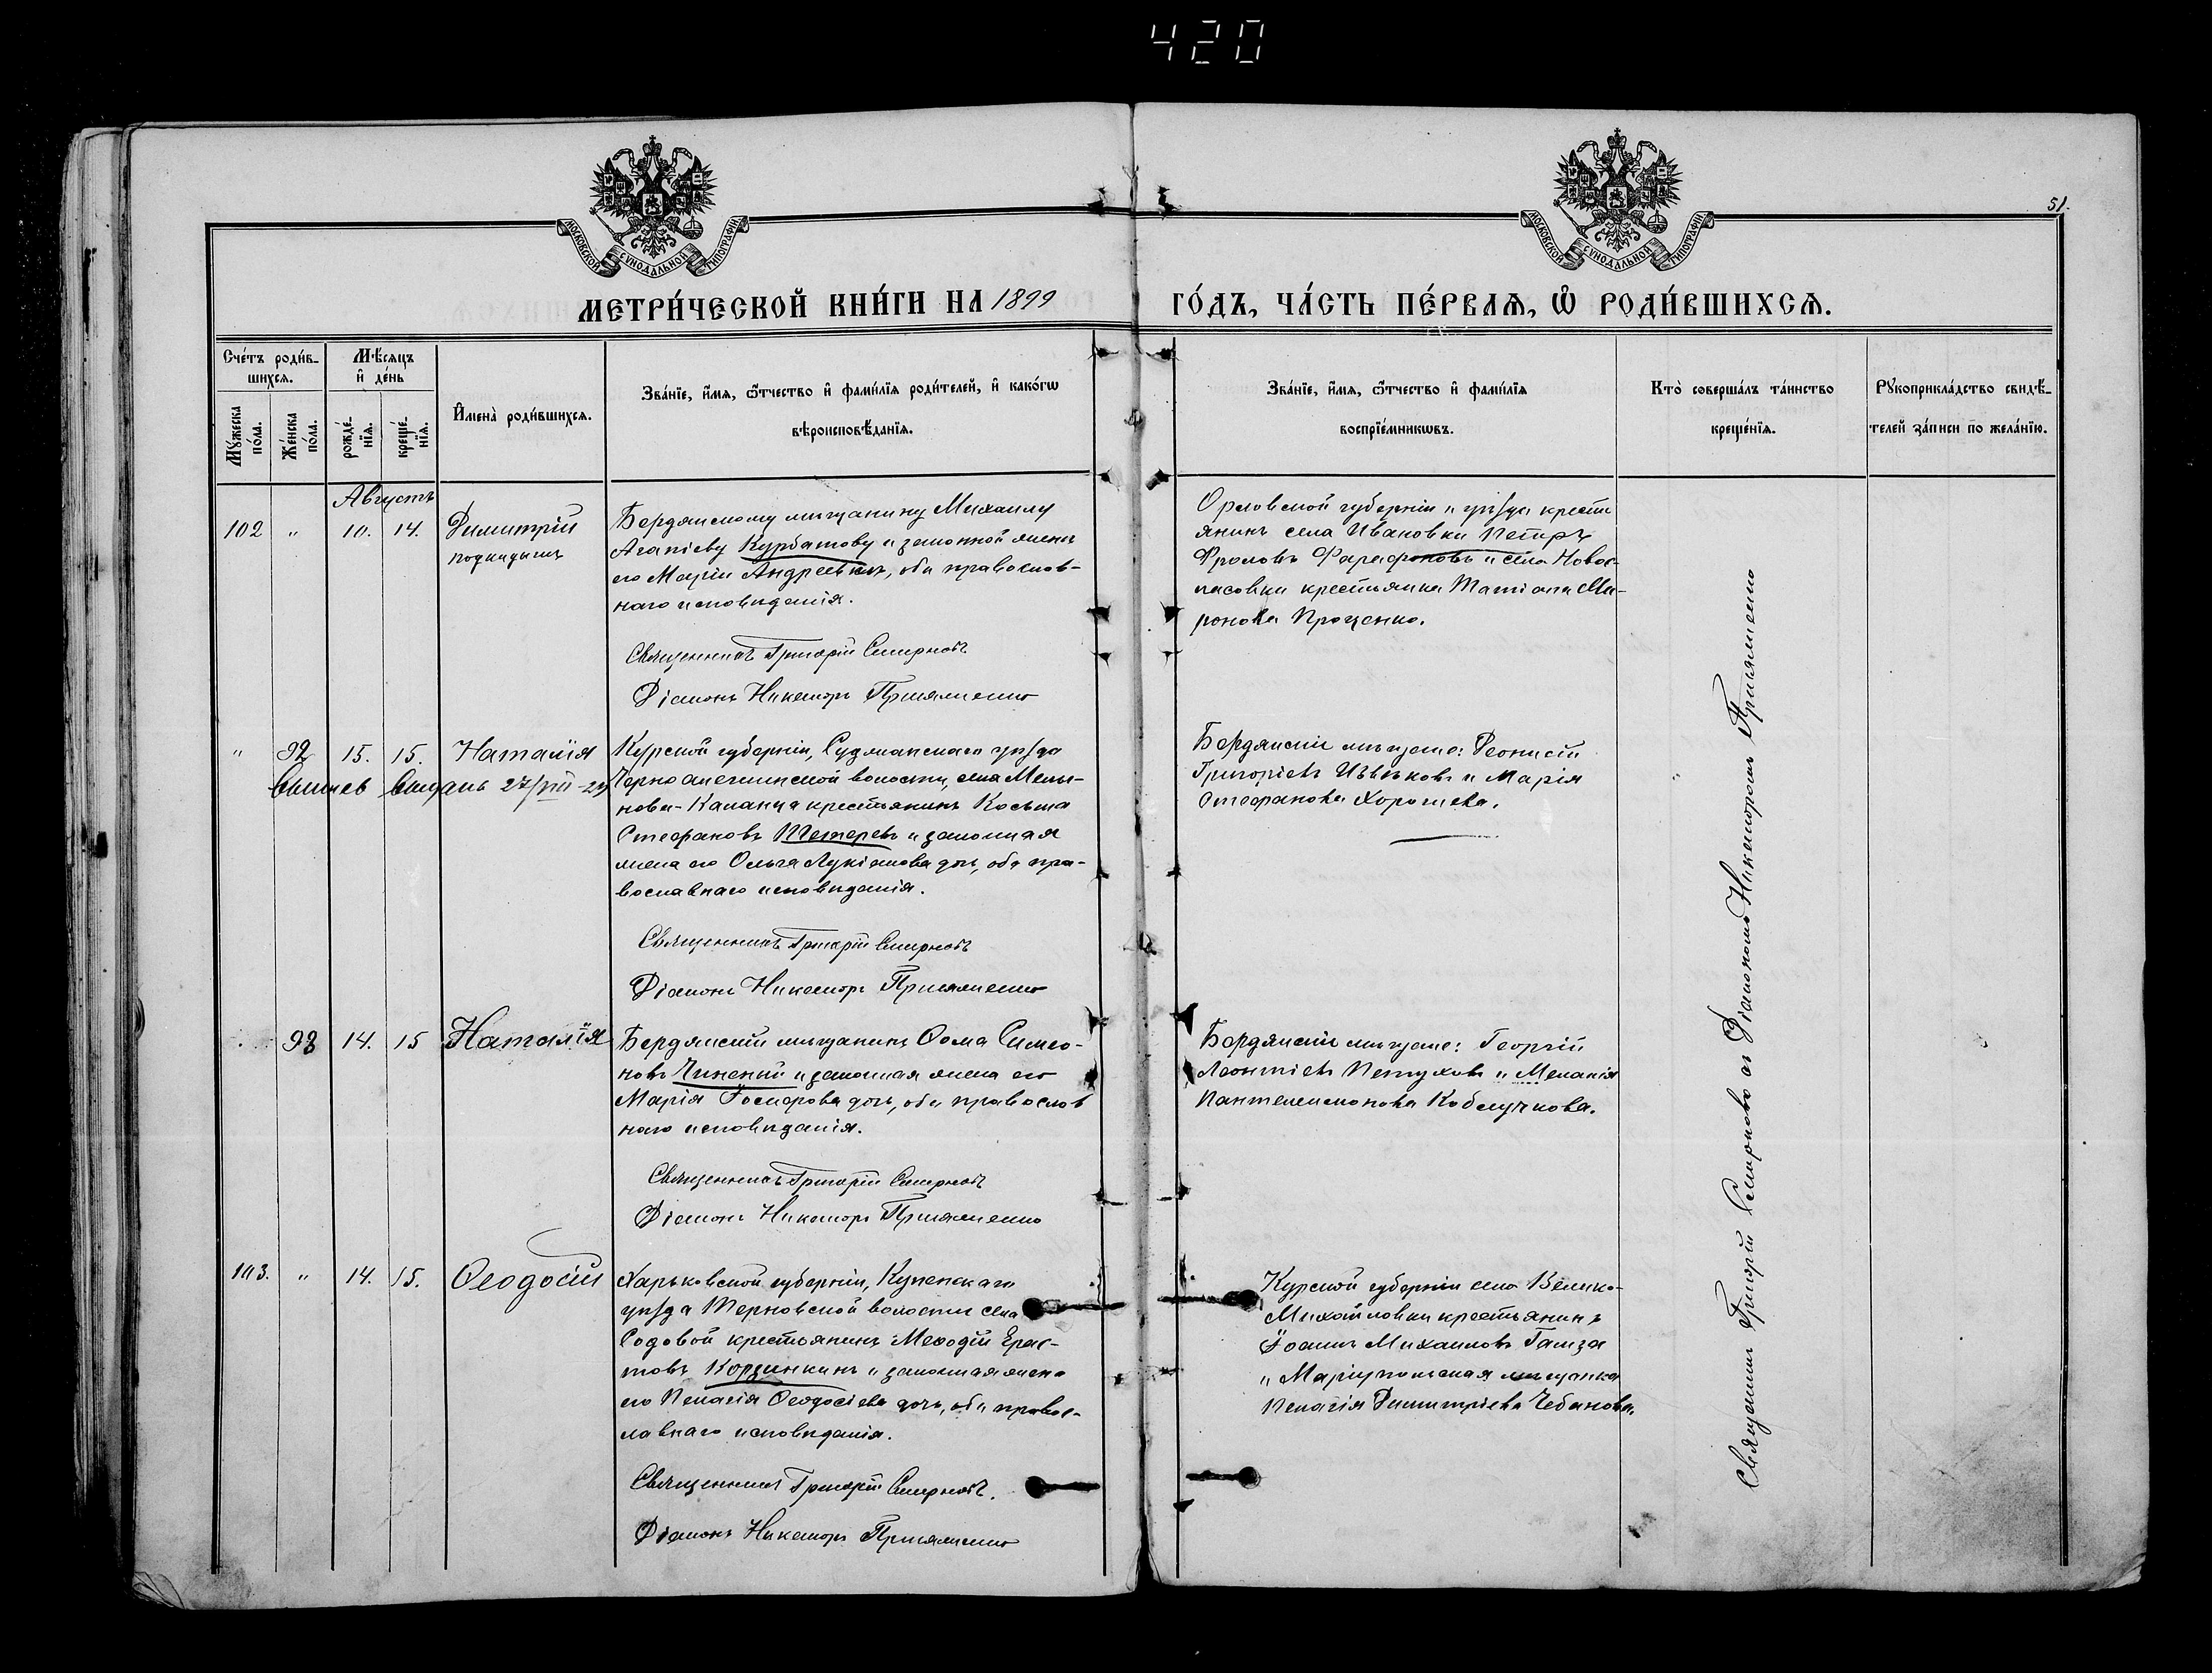 420
МОСКОВСКОЙ СУНОДАЛЬНОЙ ТИПОГРАФІИ
МОСКОВСКОЙ СУНОДАЛЬНОЙ ТИПОГРАФІИ
51.
МЕТРИ́ЧЕСКОЙ КНИ́ГИ НА 1899
ГО́ДЪ, ЧА́СТЬ ПЕ́РВАѦ, Ѡ҆ РОДИ́ВШИХСѦ.
Сче́тъ роди́в-
шихсѧ.
Мѣ́сѧцъ
и҆ де́нь
Мꙋ́жеска
по́ла.
Же́нска
по́ла.
рожде́-
нїѧ.
креще́-
нїѧ.
И҆мена̀ роди́вшихсѧ.
Зва́нїе, и҆́мѧ, ѻ҆́тчество и҆ фами́лїѧ роди́телей, и҆ како́гѡ
вѣроисповѣ́данїѧ.
Зва́нїе, и҆́мѧ, ѻ҆́тчество и҆ фами́лїѧ
воспрїе́мникѡвъ.
Кто̀ соверша́лъ та́инство
креще́нїѧ.
Рꙋкоприкла́дство свидѣ́-
телей за́писи по жела́нїю.
Августъ
102 " 10. 14. Димитрій
подкидышъ
Бердянскому мѣщанину Михаилу
Агапіеву Курбатову и законной женѣ
его Маріи Андреевнѣ, оба православ-
наго исповѣданія.
Священникъ Григорій Смирновъ
Діаконъ Никаноръ Присяженко
Орловской губерніи и уѣзда крестья
янинъ села Ивановки Петръ
Фроловъ Фарафоновъ и села Новос-
пасовки крестьянка Татіана Ми-
ронова Проценко.
" 92 15. 15. Наталія
выписъ выданъ 27/VIII-29
Курской губерніи, Суджанскаго уѣзда
волости, села
крестьянинъ Косьма
Стефановъ Тетеревъ и законная
жена его Ольга Лукіанова дочь, оба пра-
вославнаго исповѣданія.
Священникъ Григорій Смирновъ
Діаконъ Никаноръ Присяженко
Бердянскіе мѣщане: Леонтій
Григорьевъ и Марія
Стефанова Хорошева.
93 14. 15 Наталія
Бердянскій мѣщанинъ Ѳома Симео-
новъ и законная жена его
Марія дочь, оба православ
наго исповѣданія.
Священникъ Григорій Смирновъ
Діаконъ Никаноръ Присяженко
Бердянскіе мѣщане: Георгій
Леонтіевъ Петуховъ и Меланія
Пантелеимонова Коблучкова.
103. " 14. 15. Ѳеодосій
Харьковской губерніи, Купенскаго
уѣзда Терновской волости села
Содовой крестьянинъ Меѳодій Ерас-
товъ Корзинкинъ и законная жена
его Пелагія Ѳеодосіева дочь, оба правос-
лавнаго исповѣданія.
Священникъ Григорій Смирновъ.
Діаконъ Никаноръ Присяженко
Курской губерніи села Велико-
Михайловки крестьянинъ
Іоаннъ Михаиловъ
и Маріупольская мѣщанка
Пелагія Димитріева Чебанова.
Священникъ Григорій Смирновъ съ Діакономъ Никаноромъ Присяженко